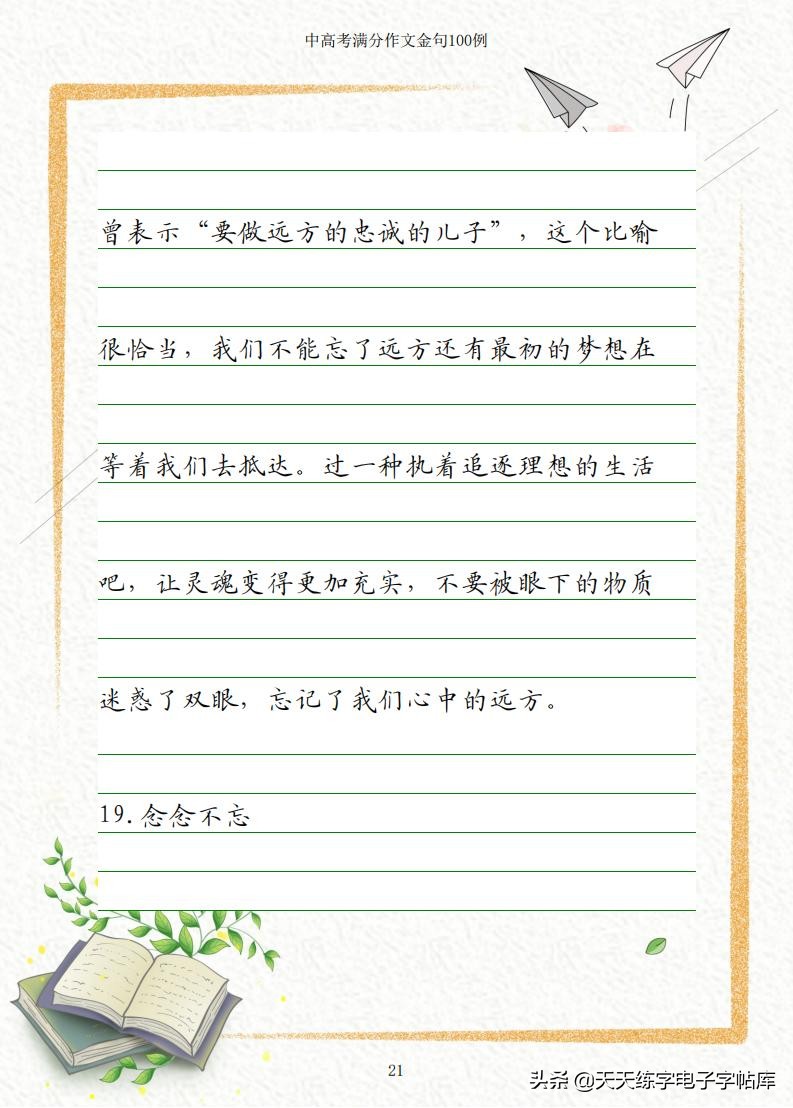 中高考满分作文金句100例
曾表示“要做远方的忠诚的儿子”，这个比喻
很恰当，我们不能忘了远方还有最初的梦想在
等着我们去抵达。过一种执着追逐理想的生活
吧，让灵魂变得更加充实，不要被眼下的物质
迷惑了双眼，忘记了我们心中的远方。
19.念念不忘
21
头条 @天天练字电子字帖库